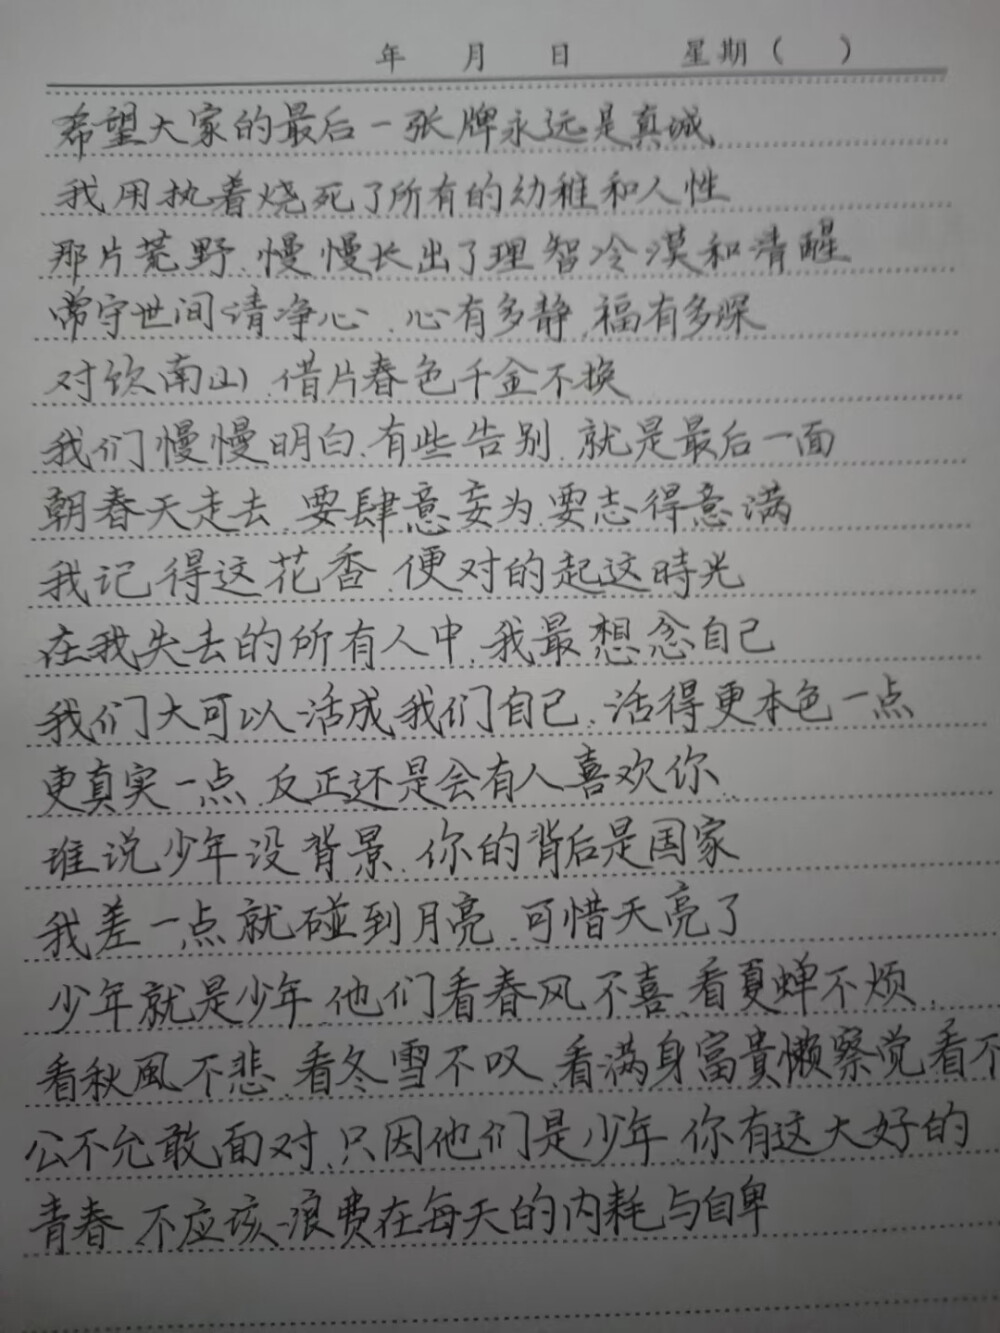 年 月 日 星期( )
希望大家的最后一张牌永远是真诚
我用执着烧死了所有的幼稚和人性
那片荒野 慢慢长出了理智冷漠和清醒
常守世间请净心 心有多静 福有多深
对饮南山 借片春色千金不换
我们慢慢明白 有些告别 就是最后一面
朝春天走去 要肆意妄为 要志得意满
我记得这花香 便对的起这時光
在我失去的所有人中 我最想念自己
我们大可以活成我们自己 活得更本色一点
更真实一点 反正还是会有人喜欢你
谁说少年没背景 你的背后是国家
我差一点就碰到月亮 可惜天亮了
少年就是少年 他们看春风不喜 看夏蝉不烦
看秋風不悲 看冬雪不叹 看满身富貴懒察觉 看不
公不允敢面对 只因他们是少年 你有这大好的
青春 不应该浪费在每天的内耗与自卑